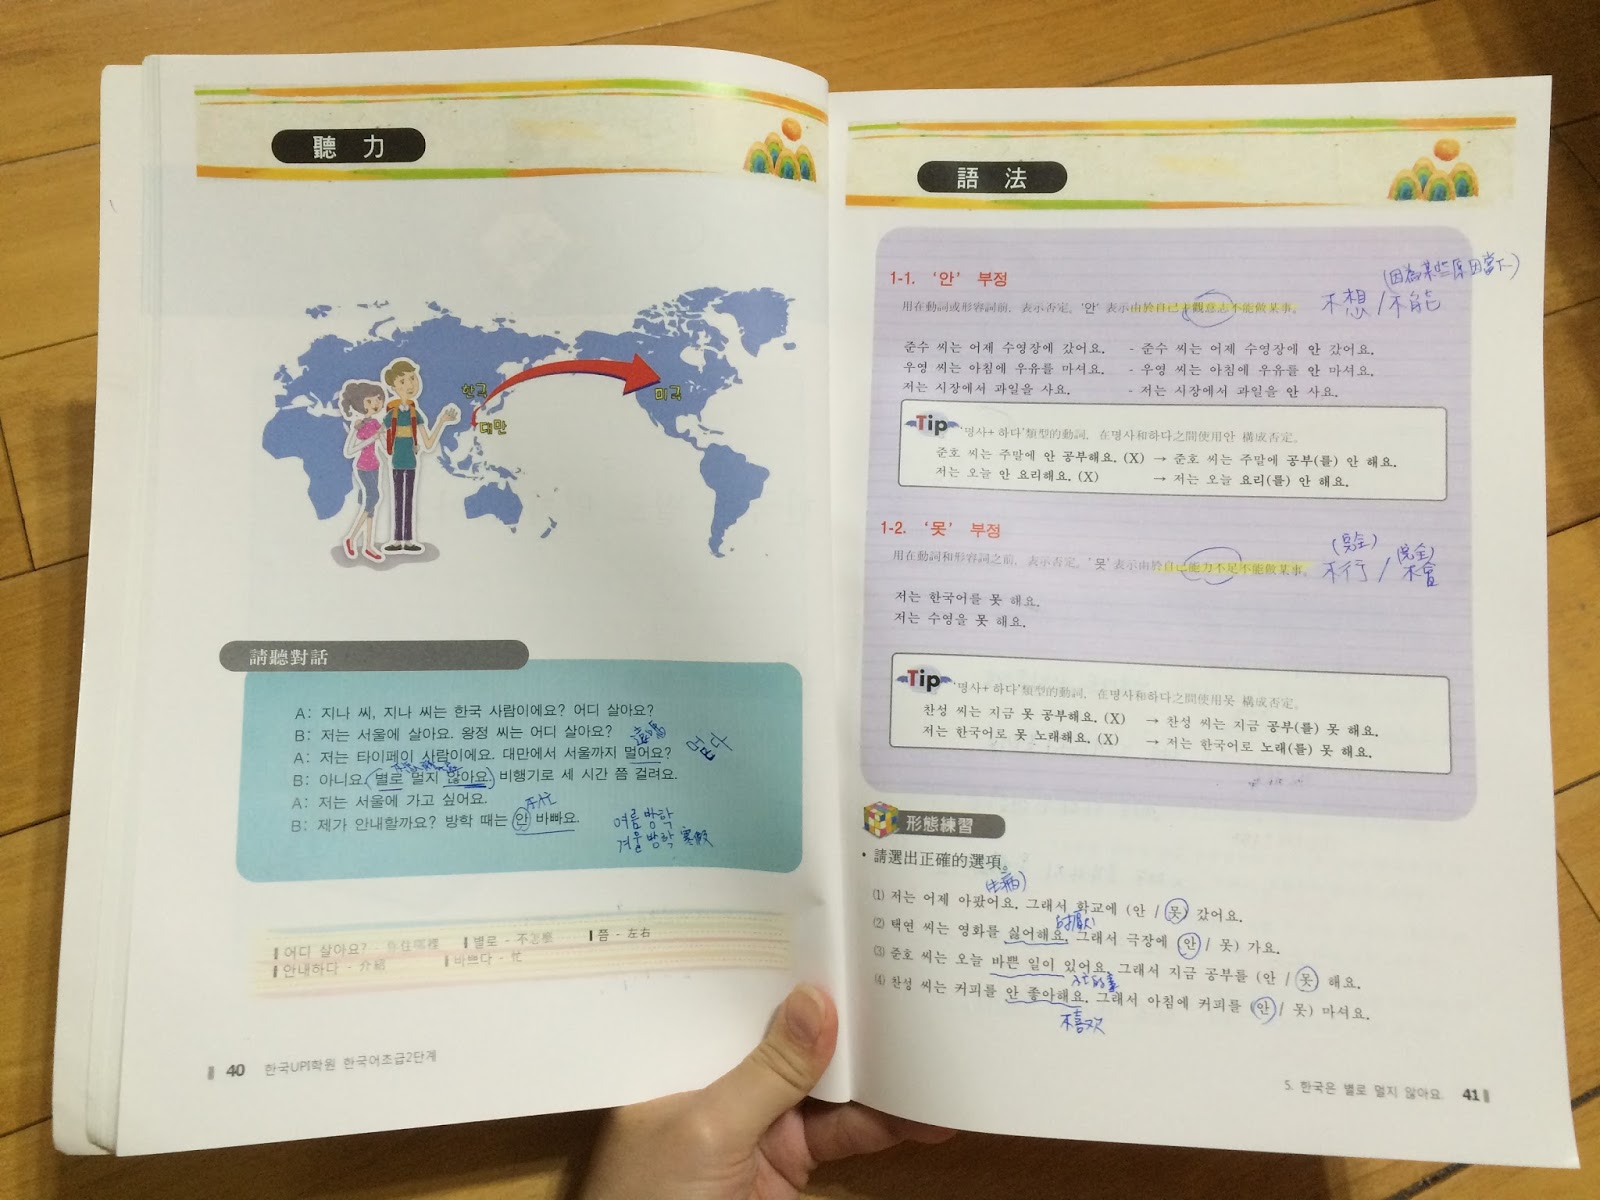 聽 力
한국
미국
대만
請聽對話
A: 지나 씨, 지나 씨는 한국 사람이에요? 어디 살아요?
B: 저는 서울에 살아요. 왕정 씨는 어디 살아요?
A: 저는 타이페이 사람이에요. 대만에서 서울까지 멀어요?
멀다
B: 아니요. (별로 멀지 않아요.) 비행기로 세 시간 쯤 걸려요.
A: 저는 서울에 가고 싶어요.
不忙
B: 제가 안내할까요? 방학 때는 안 바빠요.
여름 방학
겨울 방학 寒假
어디 살아요? - 身住哪裡 별로 - 不怎麼 쯤 - 左右
안내하다 - 介紹 바쁘다 - 忙
40 한국UPI학원 한국어초급2단계
語 法
1-1. '안' 부정
(因為某些原因當下)
不想 / 不能
用在動詞或形容詞前, 表示否定。'안' 表示由於自己主觀意志不能做某事。
준수 씨는 어제 수영장에 갔어요. - 준수 씨는 어제 수영장에 안 갔어요.
우영 씨는 아침에 우유를 마셔요. - 우영 씨는 아침에 우유를 안 마셔요.
저는 시장에서 과일을 사요. - 저는 시장에서 과일을 안 사요.
Tip '명사+하다'類型的動詞, 在명사和하다之間使用안 構成否定。
준호 씨는 주말에 안 공부해요. (X) → 준호 씨는 주말에 공부(를) 안 해요.
저는 오늘 안 요리해요. (X) → 저는 오늘 요리(를) 안 해요.
1-2. '못' 부정
(完全) (完全)
不行 / 不會
用在動詞和形容詞之前, 表示否定。'못'表示由於自己能力不足不能做某事。
저는 한국어를 못 해요.
저는 수영을 못 해요.
Tip '명사+하다'類型的動詞, 在명사和하다之間使用못 構成否定。
찬성 씨는 지금 못 공부해요. (X) → 찬성 씨는 지금 공부(를) 못 해요.
저는 한국어로 못 노래해요. (X) → 저는 한국어로 노래(를) 못 해요.
形態練習
• 請選出正確的選項。
(生病)
(1) 저는 어제 아팠어요. 그래서 학교에 (안 / 못) 갔어요.
(2) 택연 씨는 영화를 싫어해요. 그래서 극장에 (안 / 못) 가요.
(3) 준호 씨는 오늘 바쁜 일이 있어요. 그래서 지금 공부를 (안 / 못) 해요.
(4) 찬성 씨는 커피를 안 좋아해요. 그래서 아침에 커피를 (안 / 못) 마셔요.
不喜欢
5. 한국은 별로 멀지 않아요. 41